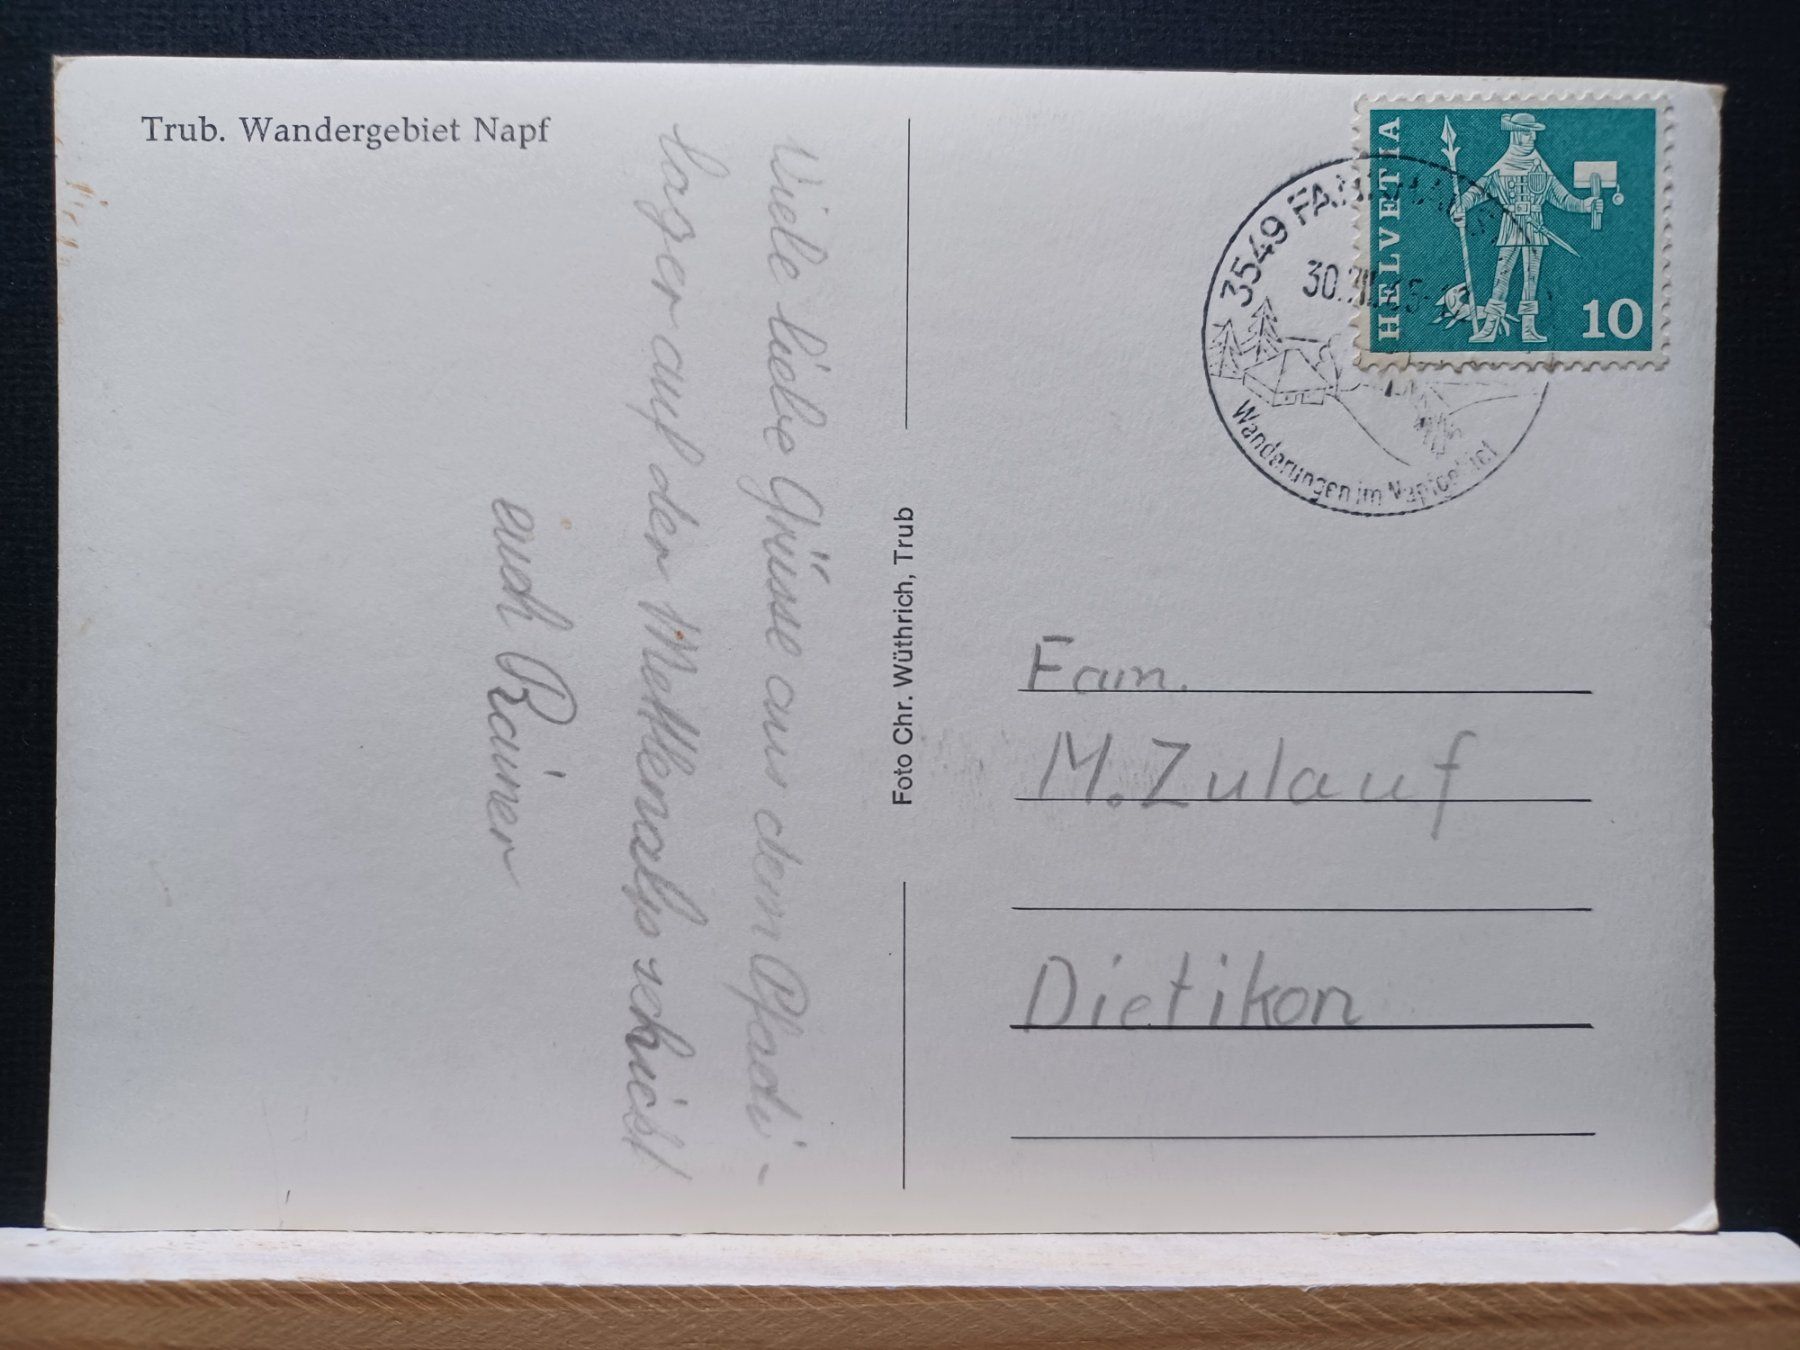 Trub. Wandergebiet Napf
Viele liebe Grüsse aus dem Pfadi-
lager auf der Mettlenalp schickt
euch Rainer
Foto Chr. Wüthrich, Trub
HELVETIA
10
3549
30.
Wanderungen im Napfgebiet
Fam.
M. Zulauf
Dietikon